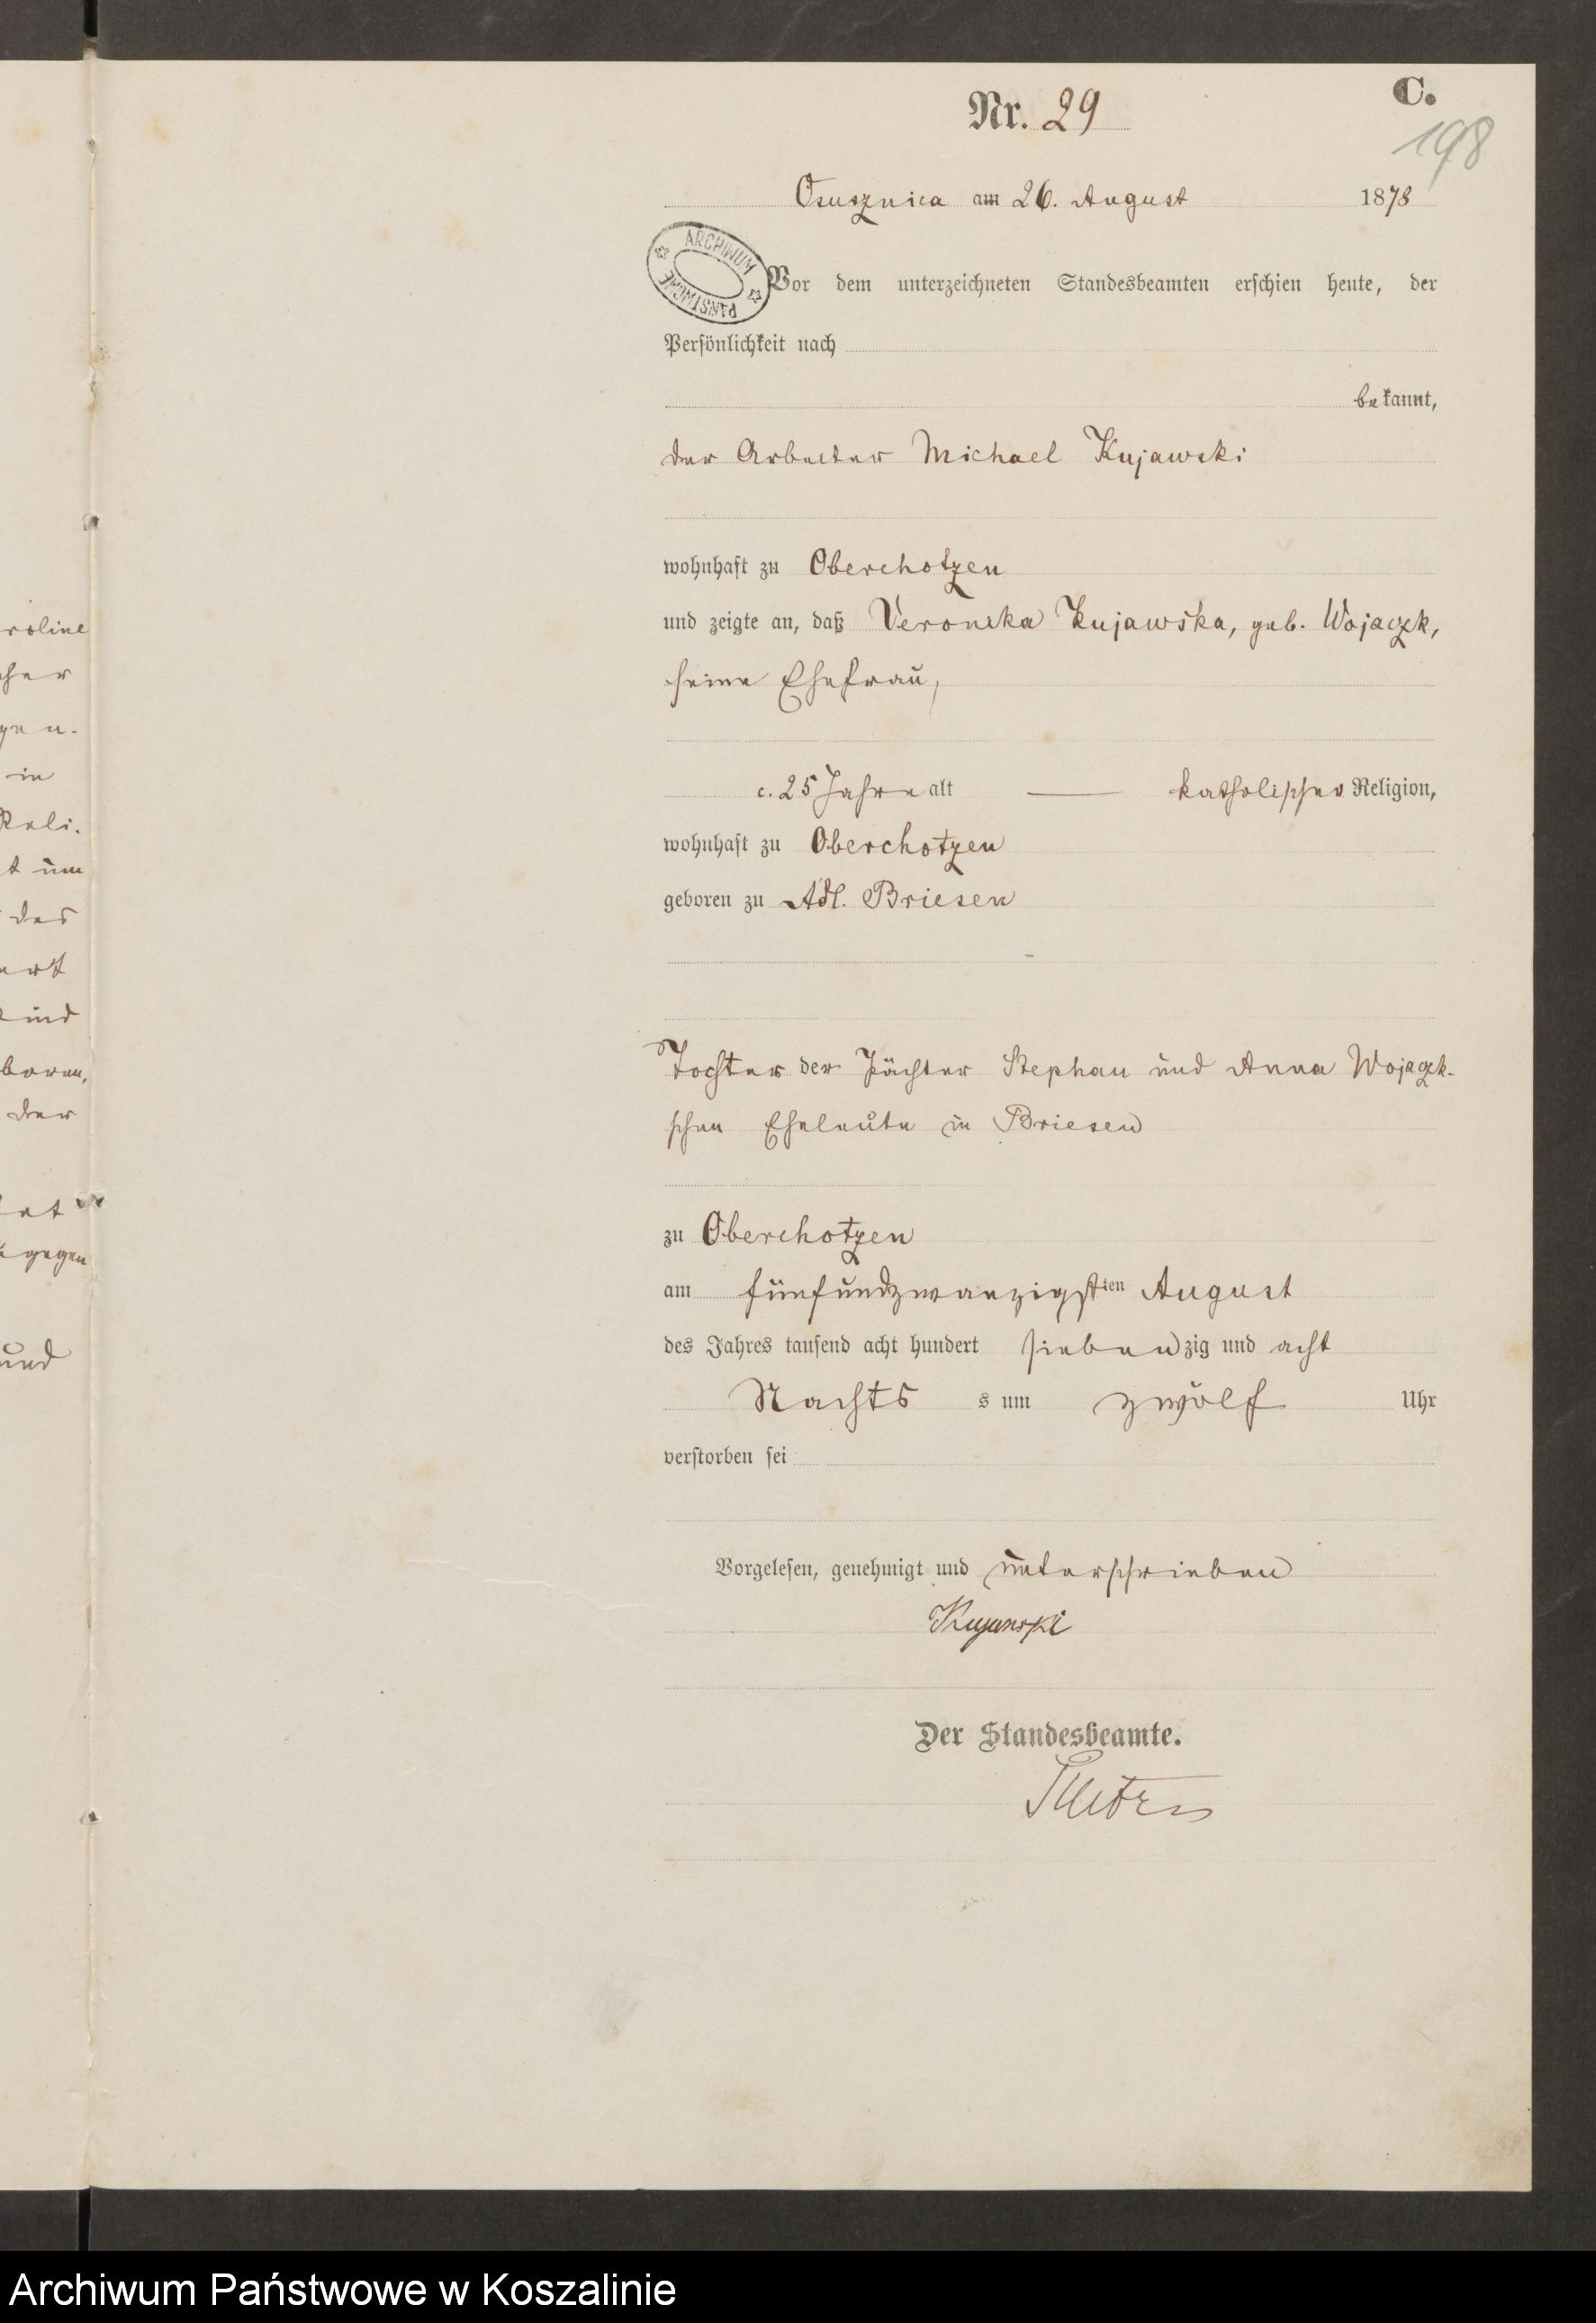 roline
her
gen.
in
Reli.
t um
des
ert
Kind
boren,
der
gegen
und
C.
Nr. 29
198
Osusznica am 26. August 1878
ARCHIWUM PAŃSTWOWE
Vor dem unterzeichneten Standesbeamten erschien heute, der
Persönlichkeit nach
bekannt,
der Arbeiter Michael Kujawski
wohnhaft zu Oberchotzen
und zeigte an, daß Veronika Kujawska, geb. Wojaczk,
seine Ehefrau,
c. 25 Jahre alt — katholischer Religion,
wohnhaft zu Oberchotzen
geboren zu Adl. Briesen
Tochter der Pächter Stephan und Anna Wojaczk-
schen Eheleute in Briesen
zu Oberchotzen
am fünfundzwanzigsten August
des Jahres tausend acht hundert siebenzig und acht
Nachts s um zwölf Uhr
verstorben sei
Vorgelesen, genehmigt und unterschrieben
Kujawski
Der Standesbeamte.
Archiwum Państwowe w Koszalinie